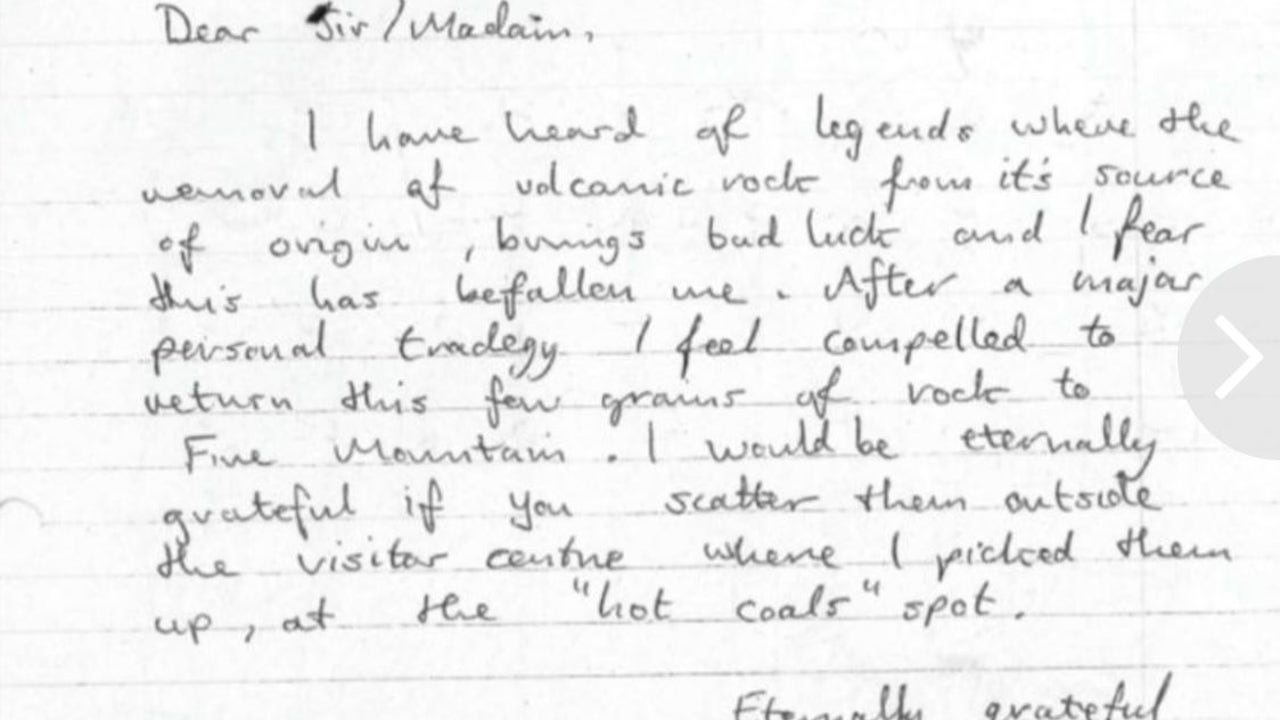 Dear Sir/Madam,
I have heard of legends where the
removal of volcanic rock from it's source
of origin, brings bad luck and I fear
this has befallen me. After a major
personal tradegy I feel compelled to
return this few grains of rock to
Fire Mountain. I would be eternally
grateful if you scatter them outside
the visitor centre where I picked them
up, at the "hot coals" spot.
Eternally grateful